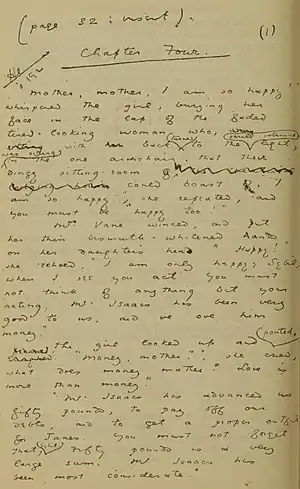 (page 32: insert).
(1)
Chapter Four.
"Mother, mother, I am so happy,"
whispered the girl, burying her
face in the lap of the faded
tired-looking woman who,
with her back turned to the shrill intrusive light,
was sitting in the one armchair that their
dingy sitting-room
could boast of. "I
am so happy," she repeated, "and
you must be happy too."
Mrs Vane winced, and put
her thin bismuth-whitened hands
on her daughter's head. "Happy!"
she echoed, "I am only happy, Sybil,
when I see you act. You must
not think of anything but your
acting. Mr Isaacs has been very
good to us, and we owe him
money."
The girl looked up and pouted.
"Money, mother?" she cried,
"what does money matter? Love is
more than money."
"Mr. Isaacs has advanced us
fifty pounds, to pay off our
debts, and to get a proper outfit
for James. You must not forget
that, Sybil. Fifty pounds is a very
large sum. Mr Isaacs has
been most considerate."